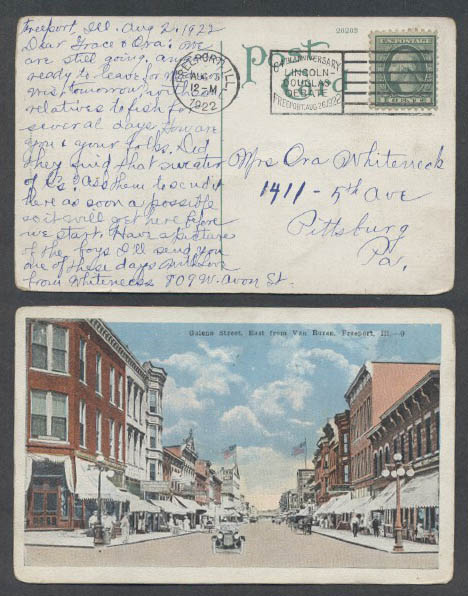 Freeport, Ill. Aug 2, 1922
Dear Grace & Ora: We
are still going, and
ready to leave for
tomorrow, with
relatives to fish for
several days. How are
you & your folks. Did
they find that sweater
of C's? Ask them to send it
here as soon as possible
so it will get here before
we start. Have a picture
of the boys I'll send you
one of these days. With Love
from Whitenecks 809 W. Avon St.
20209
Post Card
FREEPORT, ILL.
AUG 3
12-M
1922
64TH ANNIVERSARY
LINCOLN-
DOUGLAS
DEBATE
FREEPORT, AUG. 26, 1922
U.S. POSTAGE
1 CENTS 1
Mrs Ora Whiteneck
1411 - 5th Ave
Pittsburg
Pa,
Galena Street, East from Van Buren, Freeport, Ill.—9